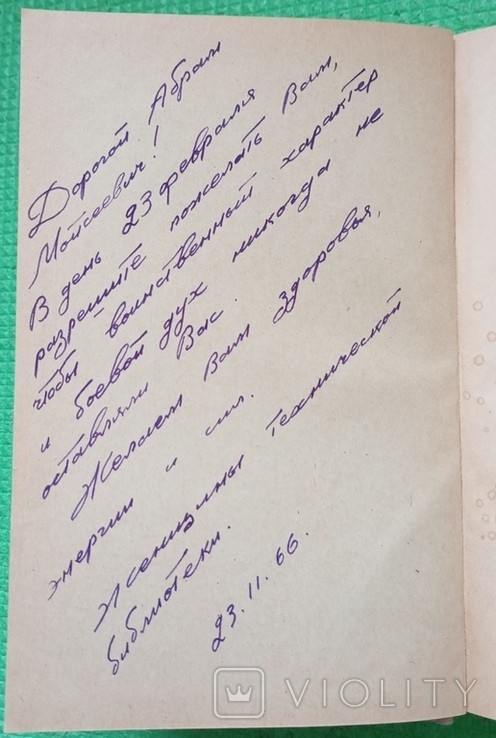 Дорогой Абрам
Моисеевич!
В день 23 февраля
разрешите пожелать Вам,
чтобы воинственный характер
и боевой дух никогда не
оставляли Вас.
Желаем Вам здоровья,
энергии и сил.
Женщины технической
библиотеки.
23.11.66.
VIOLITY